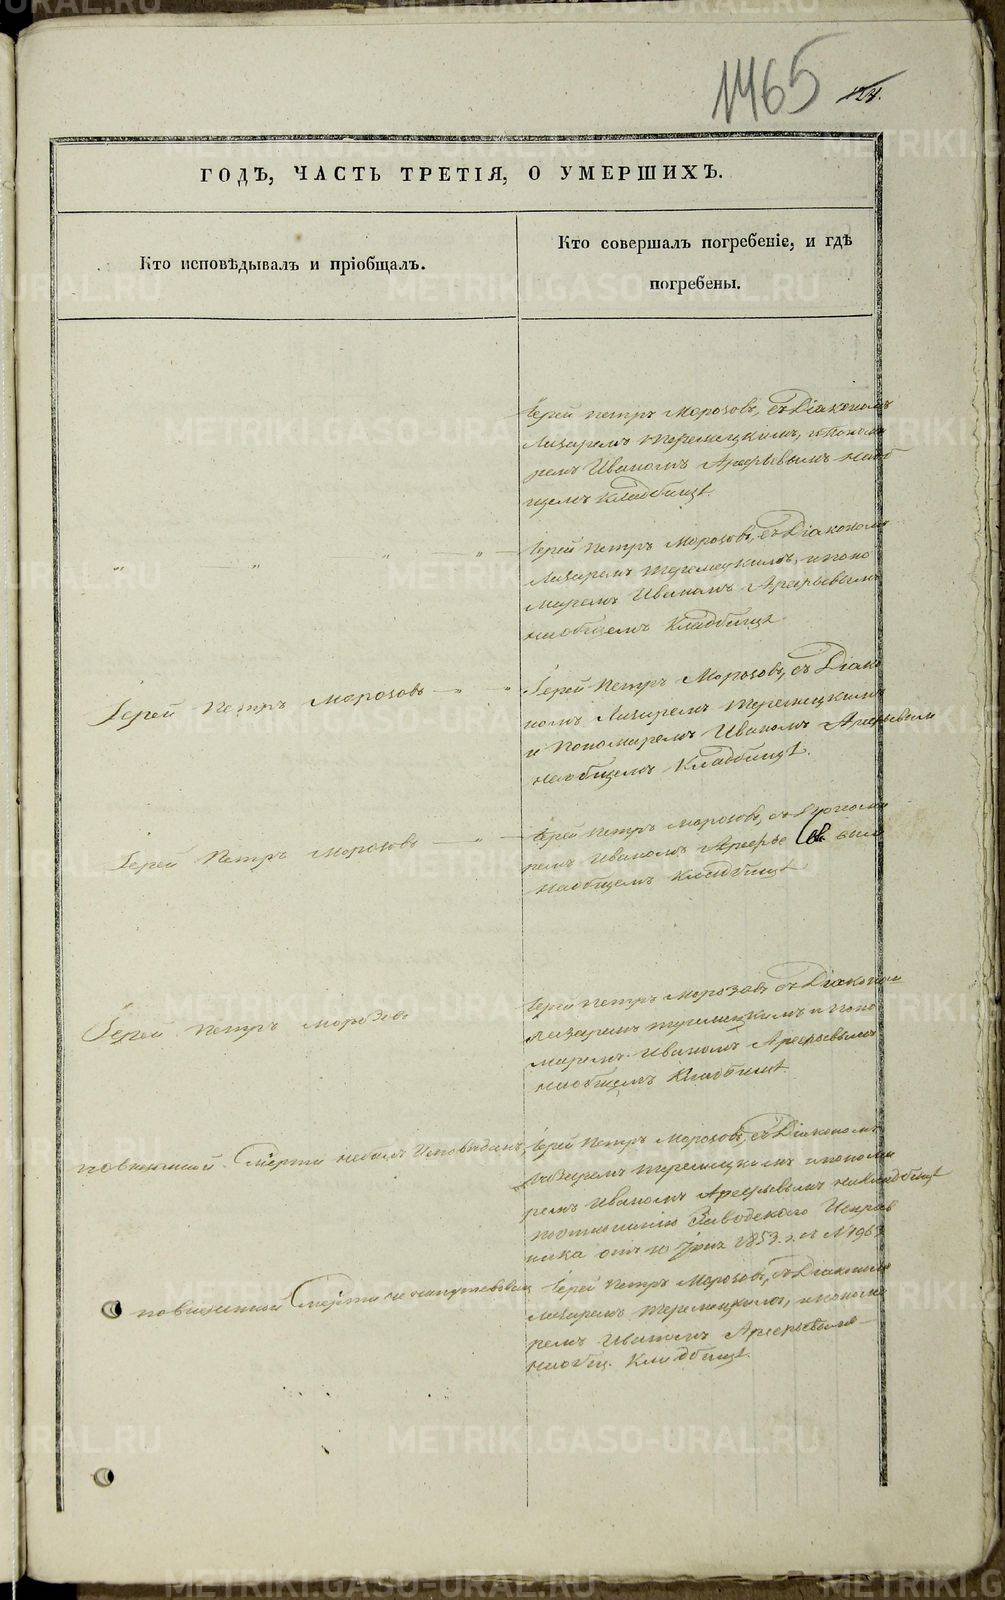 1465
124.
ГОДЪ, ЧАСТЬ ТРЕТІЯ, О УМЕРШИХЪ.
Кто исповѣдывалъ и пріобщалъ.
Кто совершалъ погребеніе, и гдѣ
погребены.
Іерей Петръ Морозовъ, съ Діакономъ
Лазаремъ , и Понома
ремъ Иваномъ Арефьевымъ на об
щемъ Кладбищѣ.
Іерей Петръ Морозовъ, съ Діакономъ
Лазаремъ , и поно
маремъ Иваномъ Арефьевымъ
на общемъ Кладбищѣ
Іерей Петръ Морозовъ
Іерей Петръ Морозовъ, съ Діако
номъ Лазаремъ
и Пономаремъ Иваномъ Арефьевымъ
на общемъ Кладбищѣ.
Іерей Петръ Морозовъ
Іерей Петръ Морозовъ, съ
ремъ Иваномъ Арефье
на общемъ Кладбищѣ
Іерей Петръ Морозовъ
Іерей Петръ Морозовъ съ Діакономъ
Лазаремъ и поно
маремъ Иваномъ Арефьевымъ
на общемъ Кладбищѣ.
Смерти небылъ Исповѣданъ
Іерей Петръ Морозовъ, съ Діакономъ
Лазаремъ и понома
ремъ Иваномъ Арефьевымъ на кладбищѣ
по отношенію Заводского Исправ
ника отъ 10 1853 г. №
Смерти не напутствованъ
Іерей Петръ Морозовъ, съ Діакономъ
Лазаремъ , и понома
ремъ Иваномъ Арефьевымъ
на общ. Кладбищѣ.
METRIKI.GASO-URAL.RU